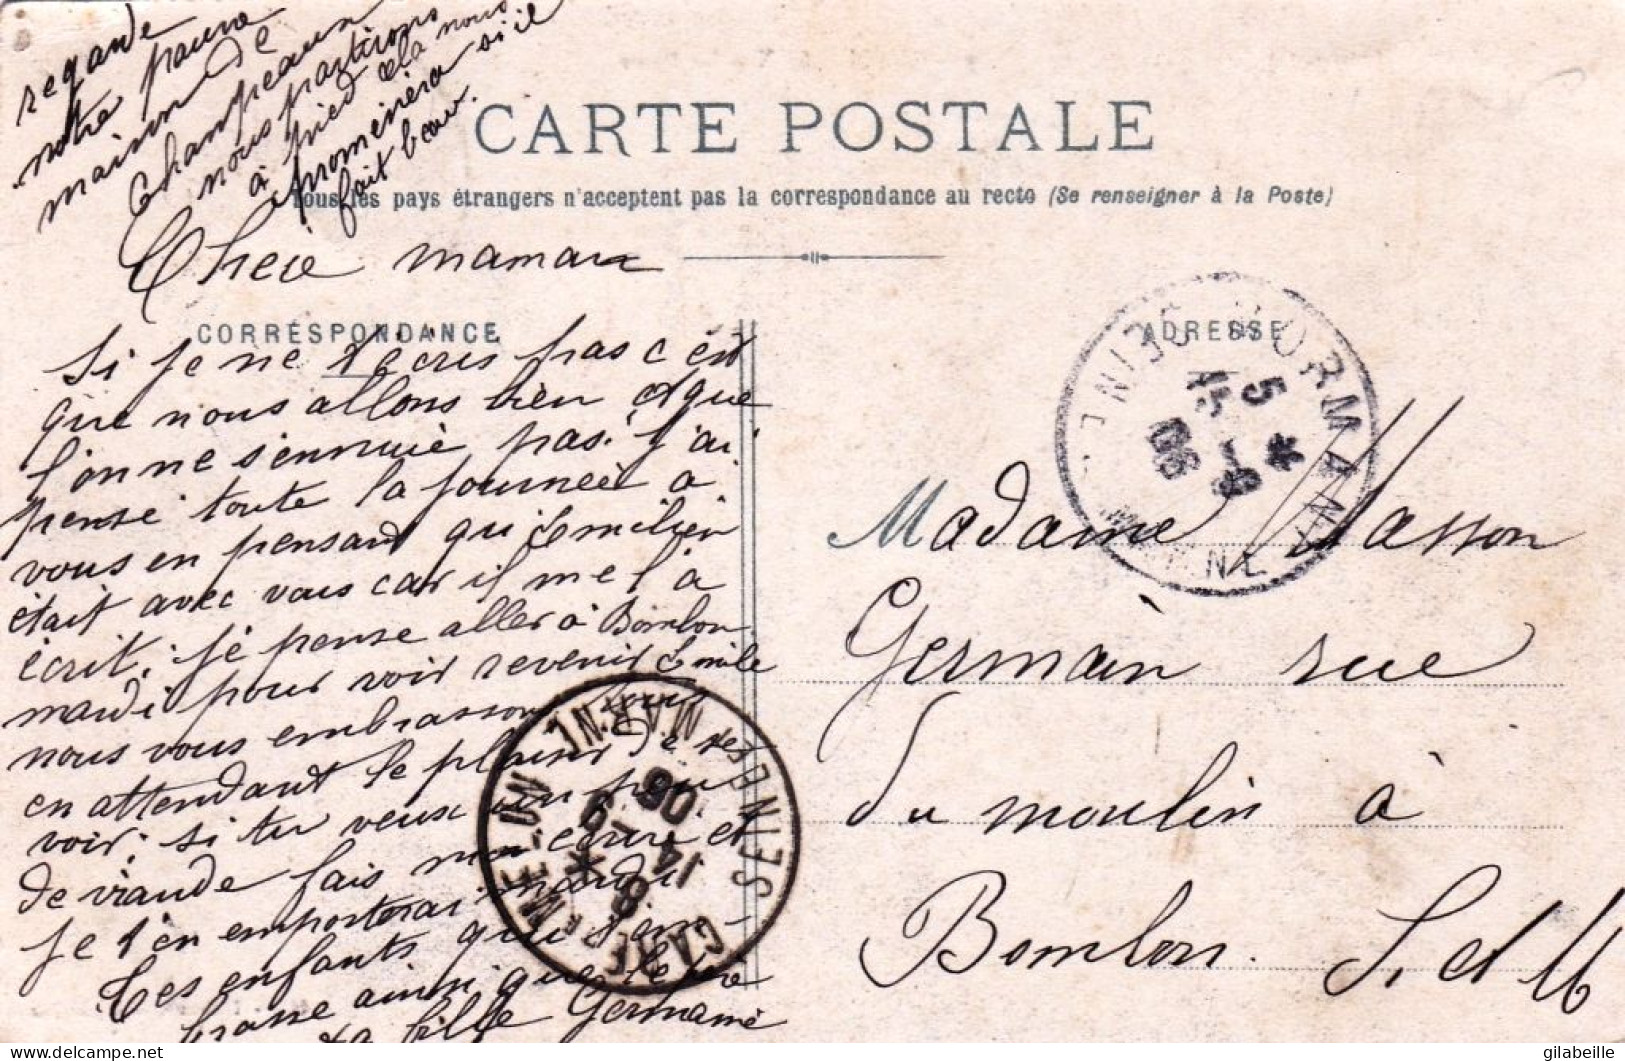 regarde
notre pauvre
maison de
Champeaux
nous partions
à pied cela nous
promènera si il
fait beau.
CARTE POSTALE
Tous les pays étrangers n'acceptent pas la correspondance au recto (Se renseigner à la Poste)
Chère maman
CORRESPONDANCE
Si je ne t'écris pas c'est
que nous allons bien et que
l'on ne s'ennuie pas. j'ai
pensé toute la journée à
vous en pensant qu'Emilien
était avec vous car il me l'a
écrit; je pense aller à Bombon
mardi pour voir revenir Emile
nous vous embrassons tous
en attendant le plaisir de te
voir; si tu veux un peu
de viande fais moi écrire et
je t'en emporterai mardi
Tes enfants qui t'em-
brasse ainsi que le père
ta fille Germaine
ADRESSE
MORMANT
SEINE ET MARNE
5 *
15 -9
06
Madame Masson
Germain rue
du moulin à
Bombon. S. et M
GARE DE MELUN
SEINE-ET-MARNE
8 *
14 -9
06
delcampe.net
gilabeille